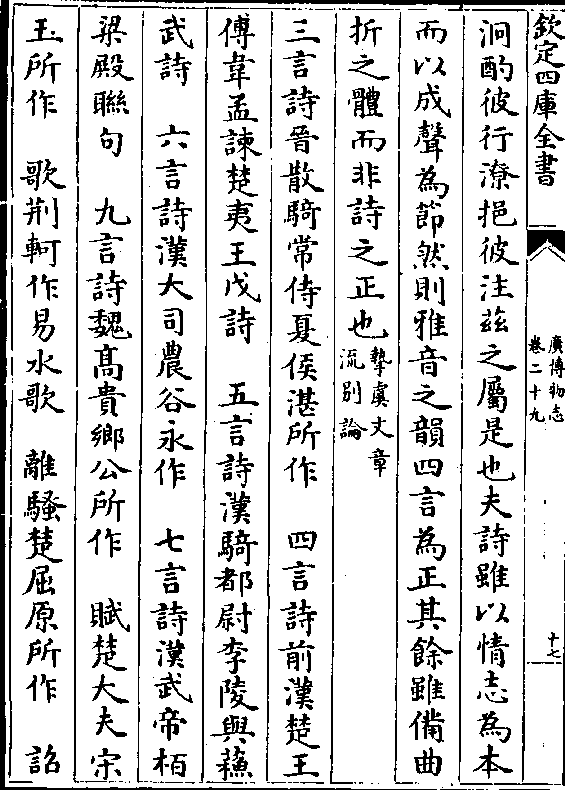 欽定四庫全書
廣博物志
卷二十九
十七
泂酌彼行潦挹彼注兹之屬是也夫詩雖以情志為本
而以成聲為節然則雅音之韻四言為正其餘雖備曲
折之體而非詩之正也摯虞文章流别論
三言詩晉散騎常侍夏侯湛所作　四言詩前漢楚王
傅韋孟諫楚夷王戊詩　五言詩漢騎都尉李陵與蘇
武詩　六言詩漢大司農谷永作　七言詩漢武帝栢
梁殿聯句　九言詩魏髙貴鄉公所作　賦楚大夫宋
玉所作　歌荆軻作易水歌　離騷楚屈原所作　詔